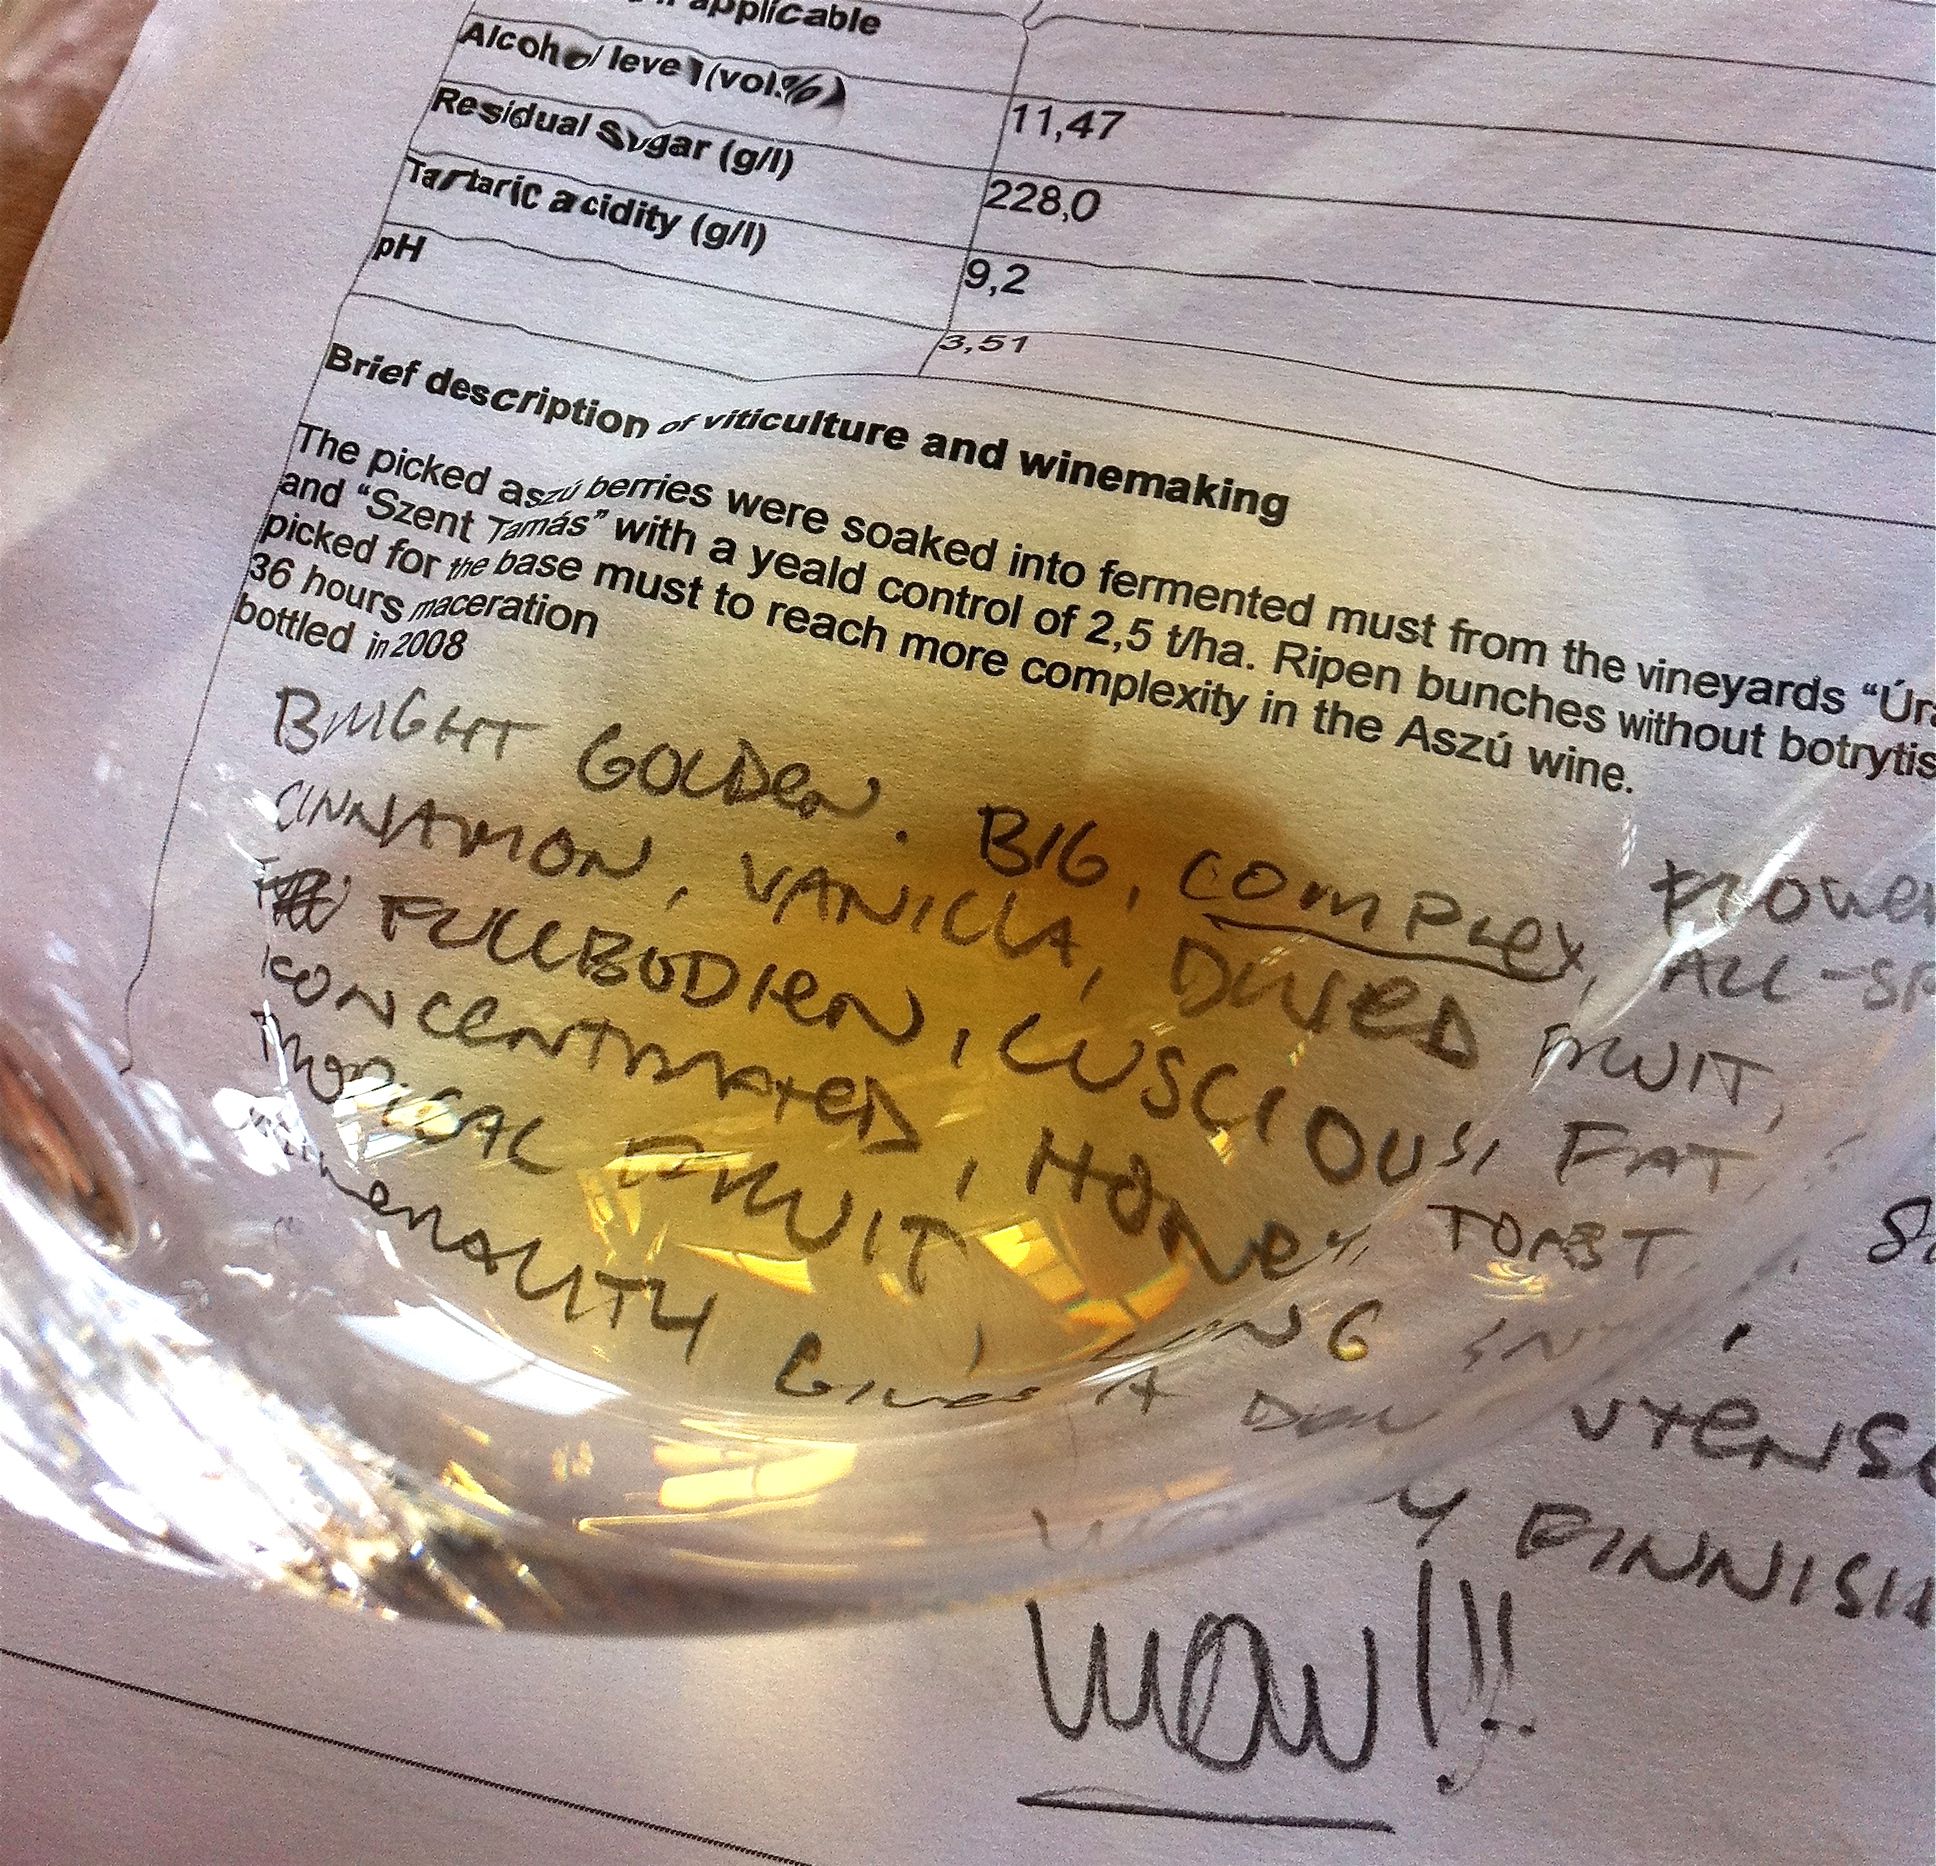 applicable
Alcohol level (vol.%) 11,47
Residual Sugar (g/l) 228,0
Tartaric acidity (g/l) 9,2
pH 3,51
Brief description of viticulture and winemaking
The picked aszú berries were soaked into fermented must from the vineyards “Úr
and “Szent Tamás” with a yeald control of 2,5 t/ha. Ripen bunches without botrytis
picked for the base must to reach more complexity in the Aszú wine.
36 hours maceration
bottled in 2008
BRIGHT GOLDEN. BIG, COMPLEX, FLOWER
CINNAMON, VANILLA, DRIED FRUIT, ALL-SP
FULLBODIED, LUSCIOUS, FAT,
CONCENTRATED, HONEY, TOAST,
TROPICAL FRUIT
GIVES A
FINNISH
WOW!!!